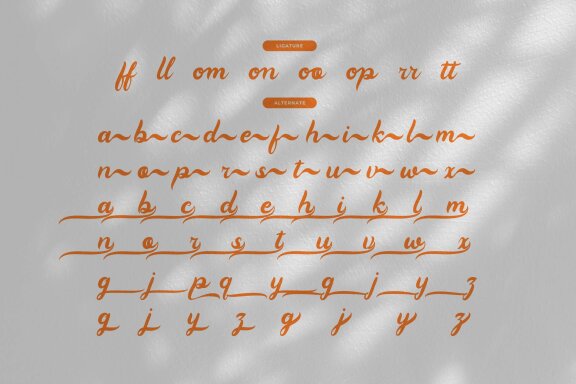 LIGATURE
ff ll om on oo op rr tt
ALTERNATE
a b c d e f h i k l m
n o p r s t u v w x
a b c d e h i k l m
n o r s t u v w x
g j p q y g j y z
g j y z g j y z